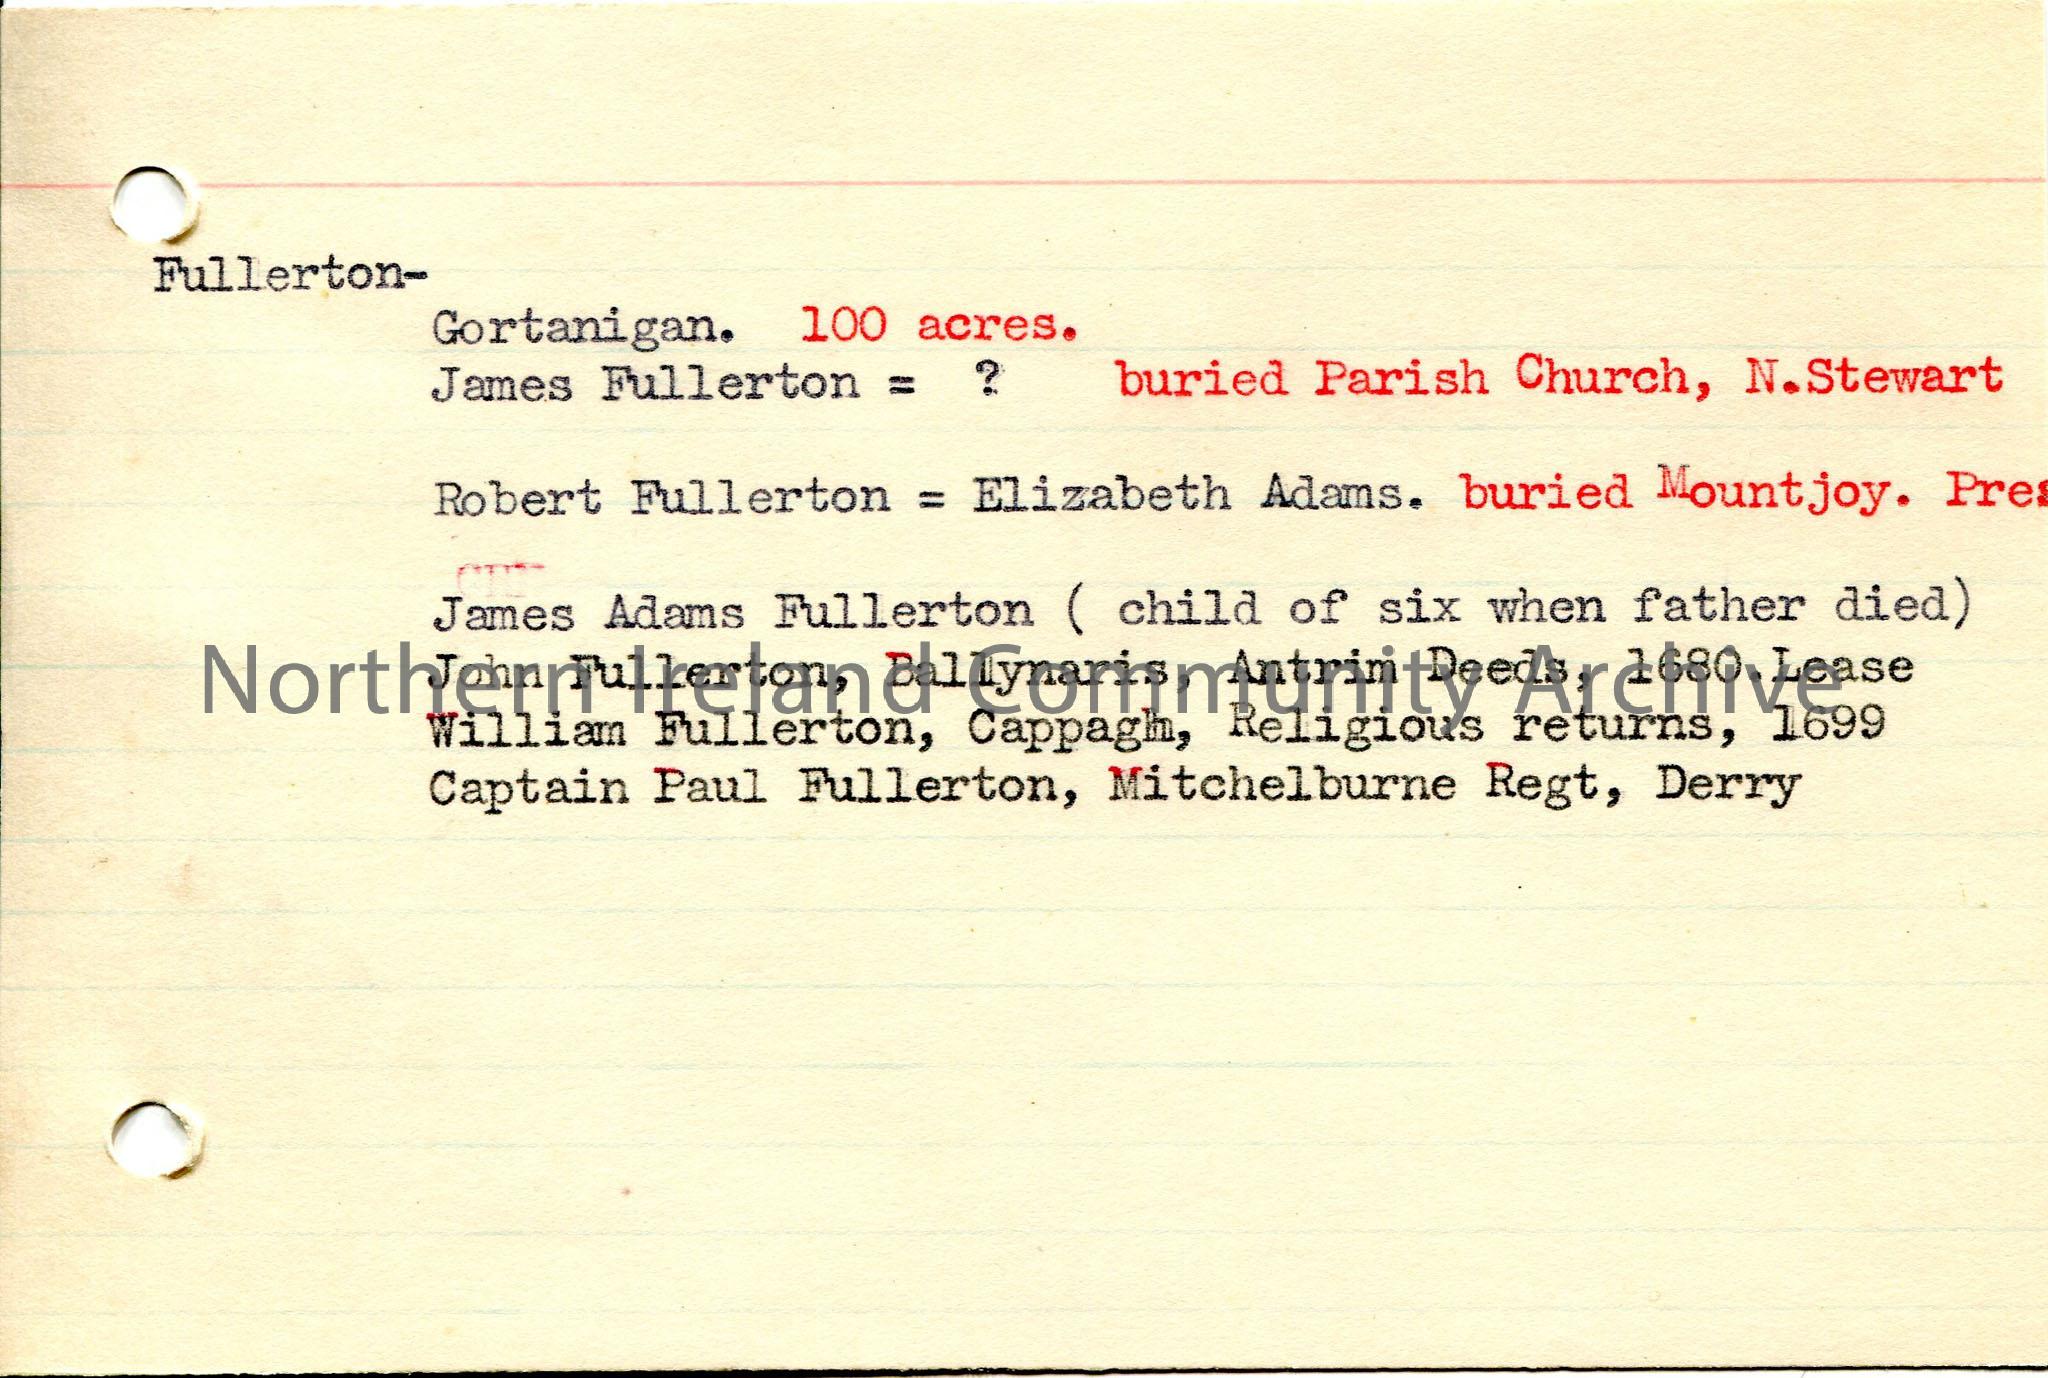 Fullerton-
Gortanigan. 100 acres.
James Fullerton = ? buried Parish Church, N.Stewart
Robert Fullerton = Elizabeth Adams. buried Mountjoy. Pres
James Adams Fullerton ( child of six when father died)
John Fullerton, Ballynaris, Antrim Deeds, 1680.Lease
Northern Ireland Community Archive
William Fullerton, Cappagh, Religious returns, 1699
Captain Paul Fullerton, Mitchelburne Regt, Derry